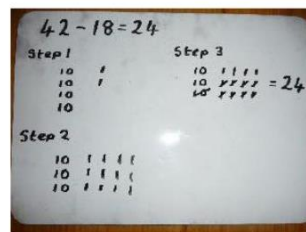 42 - 18 = 24
Step 1
10 |
10 |
10
10
Step 2
10 | | | |
10 | | | |
10 | | | |
Step 3
10 | | | |
10 | | | | = 24
10 | | | |